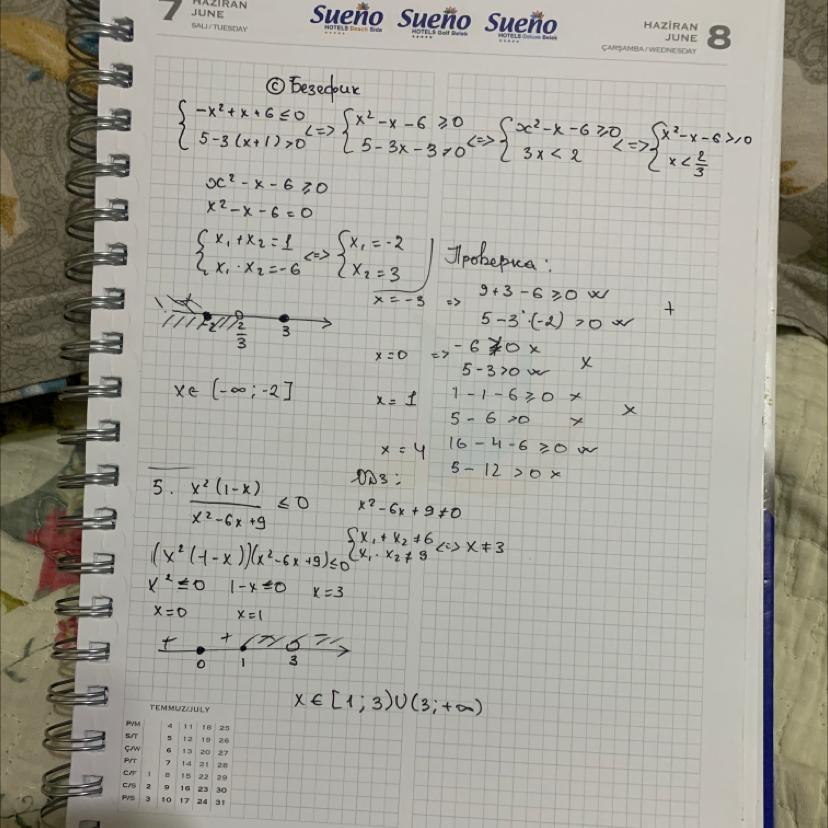 7 HAZİRAN
JUNE
SALI/TUESDAY
Sueño
HOTELS Beach Side
Sueño
HOTELS Golf Belek
Sueño
HOTELS Deluxe Belek
HAZİRAN 8
JUNE
ÇARŞAMBA/WEDNESDAY
© Безефик
{ -x² + x + 6 ≤ 0 <=> { x² - x - 6 ≥ 0 <=> { x² - x - 6 ≥ 0 <=> { x² - x - 6 ≥ 0
{ 5 - 3(x+1) > 0 { 5 - 3x - 3 > 0 { 3x < 2 { x < 2/3
x² - x - 6 ≥ 0
x² - x - 6 = 0
{ x₁ + x₂ = 1 <=> { x₁ = -2
{ x₁ · x₂ = -6 { x₂ = 3
Проверка:
x = -3 => 9 + 3 - 6 ≥ 0 +
5 - 3·(-2) > 0
-2 2/3 3
x = 0 => -6 ≱ 0 x x
5 - 3 > 0
x ∈ [-∞; -2]
x = 1 1 - 1 - 6 ≥ 0 x x
5 - 6 > 0 x
x = 4 16 - 4 - 6 ≥ 0
5 - 12 > 0 x
5. x²(1-x) / x² - 6x + 9 ≤ 0
ОДЗ:
x² - 6x + 9 ≠ 0
{ x₁ + x₂ ≠ 6 <=> x ≠ 3
{ x₁ · x₂ ≠ 9
(x²(1-x))(x² - 6x + 9) ≤ 0
x² ≤ 0 1 - x ≤ 0 x = 3
x = 0 x = 1
+ +
0 1 3
x ∈ [1; 3) ∪ (3; +∞)
TEMMUZ/JULY
P/M 4 11 18 25
S/T 5 12 19 26
Ç/W 6 13 20 27
P/T 7 14 21 28
C/F 1 8 15 22 29
C/S 2 9 16 23 30
P/S 3 10 17 24 31